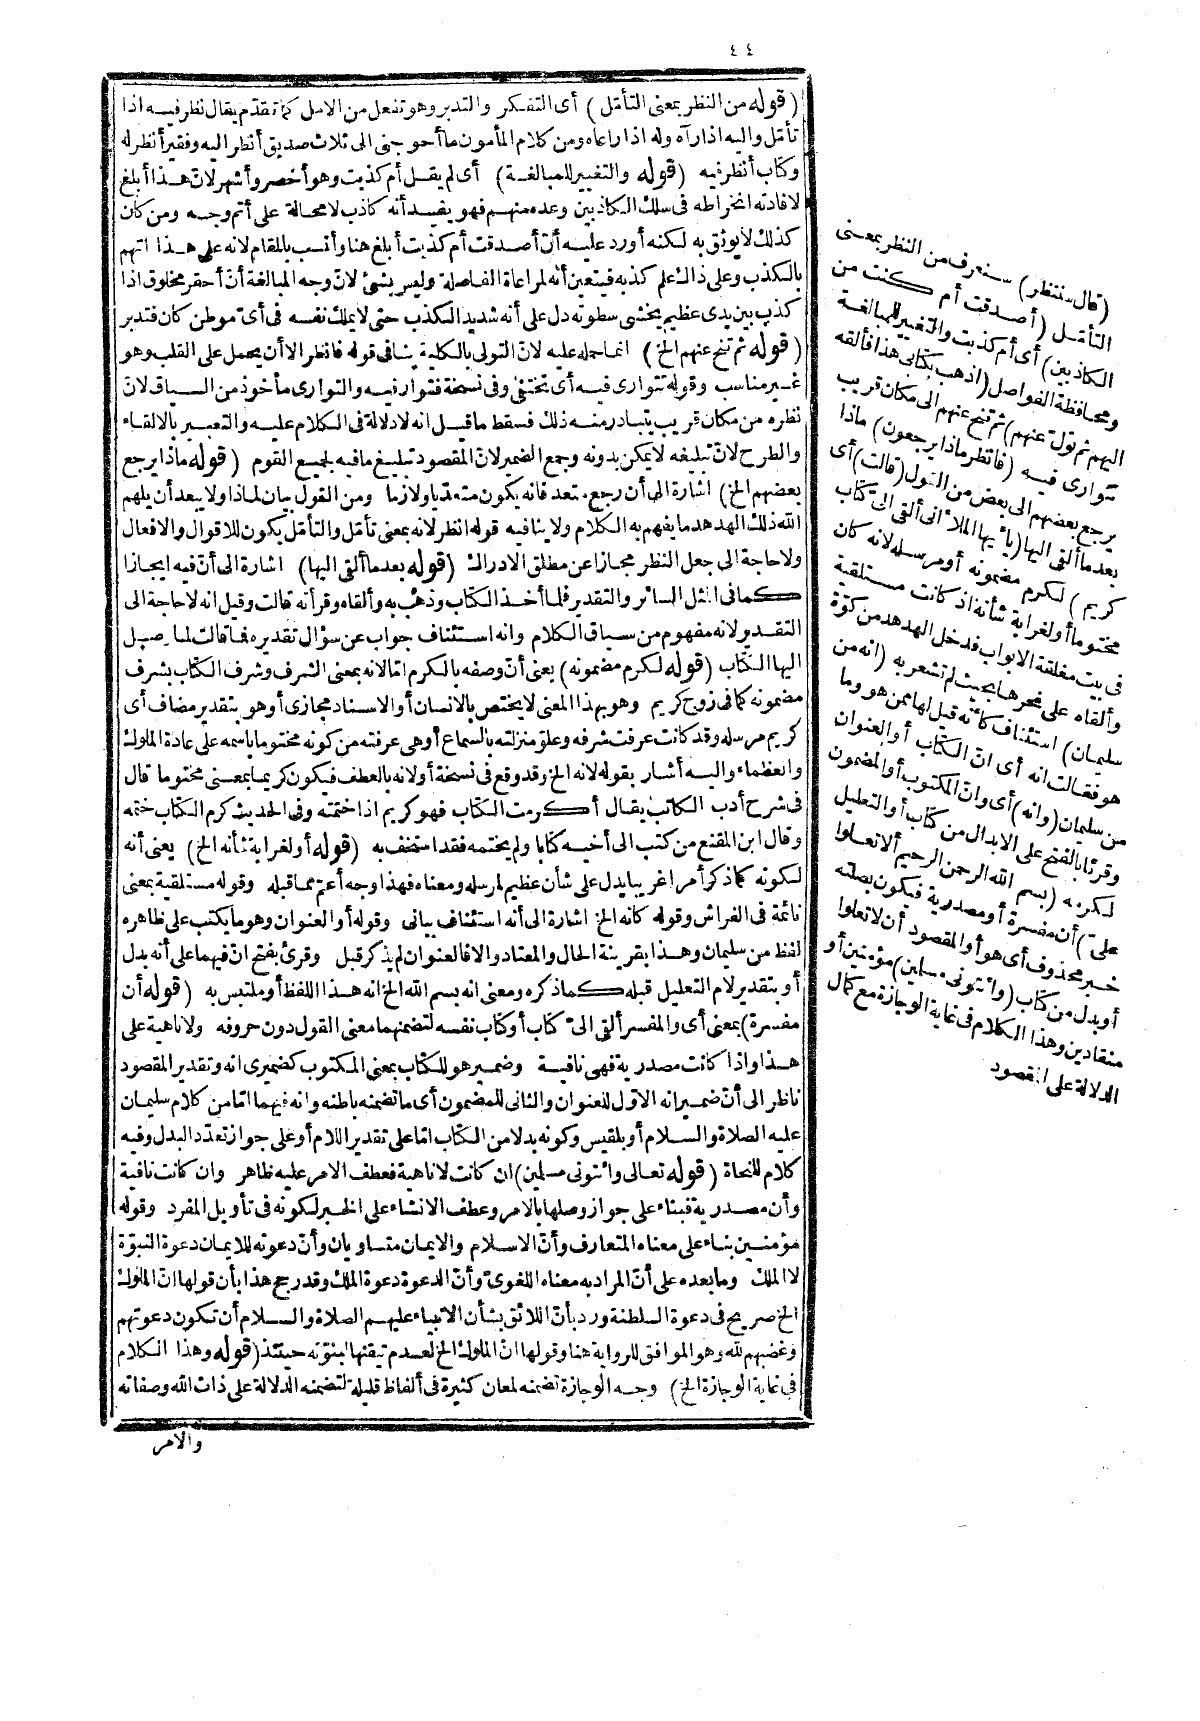 ٤٤
(قوله من النظر بمعنى التأمّل) أى التفكر والتدبر وهو تفعل من الامل كما تقدّم يقال نظر فيه اذا
تأمّل واليه اذا رآه وله اذا راعاه ومن كلام المأمون ما أحوجنى الى ثلاث صديق أنظر اليه وفقير أنظر له
وكتاب أنظر فيه (قوله والتغيير للمبالغة) أى لم يقل أم كذبت وهو أخصر وأشهر لانّ هذا أبلغ
لافادته انخراطه فى سلك الكاذبين وعده منهم فهو يفيد أنه كاذب لا محالة على أتم وجه ومن كان
كذلك لا يوثق به لكنه أورد عليه أنّ أصدقت أم كذبت أبلغ هنا وأنسب بالمقام لانه على هذا اتهم
بالكذب وعلى ذاك علم كذبه فيتعين أنه لمراعاة الفاصلة وليس بشئ لانّ وجه المبالغة أنّ أحقر مخلوق اذا
كذب بين يدى عظيم يخشى سطوته دل على أنه شديد الكذب حتى لا يملك نفسه فى أىّ موطن كان فتدبر
(قوله ثم تنح عنهم الخ) انما حمله عليه لانّ التولى بالكلية ينافى قوله فانظر الا أن يحمل على القلب وهو
غير مناسب وقوله تتوارى فيه أى تختفى وفى نسخة فتوار فيه والتوارى مأخوذ من السياق لانّ
نظره من مكان قريب يتبادر منه ذلك فسقط ما قيل انه لا دلالة فى الكلام عليه والتعبير بالالقاء
والطرح لانّ تبليغه لا يمكن بدونه وجمع الضمير لانّ المقصود تبليغ ما فيه لجميع القوم (قوله ماذا يرجع
بعضهم الخ) اشارة الى أن رجع متعد فانه يكون متعديا ولازما ومن القول بيان لماذا ولا يبعد أن يلهم
الله ذلك الهدهد ما يفهم به الكلام ولا ينافيه قوله انظر لانه بمعنى تأمّل والتأمّل يكون للاقوال والافعال
ولا حاجة الى جعل النظر مجازا عن مطلق الادراك (قوله بعد ما ألقى اليها) اشارة الى أنّ فيه ايجازا
كما فى المثل السائر والتقدير فلما أخذ الكتاب وذهب به وألقاه وقرأنه قالت وقيل انه لا حاجة الى
التقدير لانه مفهوم من سياق الكلام وانه استئناف جواب عن سؤال تقديره فما قالت لما وصل
اليها الكتاب (قوله لكرم مضمونه) يعنى أنّ وصفه بالكرم امّا لانه بمعنى الشرف وشرف الكتاب بشرف
مضمونه كما فى زوج كريم وهو بهذا المعنى لا يختص بالانسان أو الاسناد مجازى أو هو بتقدير مضاف أى
كريم مرسله وقد كانت عرفت شرفه وعلوّ منزلته بالسماع أو هى عرفته من كونه مختوما باسمه على عادة الملوك
والعظماء واليه أشار بقوله لانه الخ وقد وقع فى نسخة أو لانه بالعطف فيكون كريما بمعنى مختوما قال
فى شرح أدب الكاتب يقال أكرمت الكتاب فهو كريم اذا ختمته وفى الحديث كرم الكتاب ختمه
وقال ابن المقنع من كتب الى أخيه كتابا ولم يختمه فقد استخف به (قوله أو لغرابة شأنه الخ) يعنى أنه
لكونه كما ذكر أمر اغريبا يدل على شأن عظيم لمرسله ومعناه فهذا وجه أعمّ مما قبله وقوله مستلقية بمعنى
نائمة فى الفراش وقوله كانه الخ اشارة الى أنه استئناف بيانى وقوله أو العنوان وهو ما يكتب على ظاهره
لفظ من سليمان وهذا بقرينة الحال والمعتاد والا فالعنوان لم يذكر قبل وقرئ بفتح انّ فيهما على أنه بدل
أو بتقدير لام التعليل قبله كما ذكره ومعنى انه بسم الله الخ انه هذا اللفظ أو ملتبس به (قوله أن
مفسرة) بمعنى أى والمفسر ألقى الىّ كتاب أو كتاب نفسه لتضمنها معنى القول دون حروفه ولا ناهية على
هذا واذا كانت مصدرية فهى نافية وضمير هو للكتاب بمعنى المكتوب كضميرى انه وتقدير المقصود
ناظر الى أنّ ضمير انه الاوّل للعنوان والثانى للمضمون أى ما تضمنه باطنه وانه فيهما امّا من كلام سليمان
عليه الصلاة والسلام أو بلقيس وكونه بدلا من الكتاب امّا على تقدير اللام أو على جواز تعدّد البدل وفيه
كلام للنحاة (قوله تعالى وائتونى مسلمين) ان كانت لا ناهية فعطف الامر عليه ظاهر وان كانت نافية
وأن مصدرية فبناء على جواز وصلها بالامر وعطف الانشاء على الخبر لكونه فى تأويل المفرد وقوله
مؤمنين بناء على معناه المتعارف وأنّ الاسلام والايمان متساويان وأنّ دعوته للايمان دعوة النبوّة
لا الملك وما بعده على أنّ المراد به معناه اللغوىّ وأنّ الدعوة دعوة الملك وقد رجح هذا بأن قولها انّ الملوك
الخ صريح فى دعوة السلطنة وردّ بأنّ اللائق بشأن الانبياء عليهم الصلاة والسلام أن تكون دعوتهم
وغضبهم لله وهو الموافق للرواية هنا وقولها انّ الملوك الخ لعدم تيقنها لبنوّته حينئذ (قوله وهذا الكلام
فى غاية الوجازة الخ) وجه الوجازة تضمنه لمعان كثيرة فى ألفاظ قليلة لتضمنه الدلالة على ذات الله وصفاته
والامر
(قال سننظر) سنعرف من النظر بمعنى
التأمّل (أصدقت أم كنت من
الكاذبين) أى أم كذبت والتغيير للمبالغة
ومحافظة الفواصل (اذهب بكتابى هذا فألقه
اليهم ثم تولّ عنهم) ثم تنح عنهم الى مكان قريب
تتوارى فيه (فانظر ماذا يرجعون) ماذا
يرجع بعضهم الى بعض من القول (قالت) أى
بعد ما ألقى اليها (يا أيها الملأ انى ألقى الىّ كتاب
كريم) لكرم مضمونه أو مرسله لانه كان
مختوما أو لغرابة شأنه اذ كانت مستلقية
فى بيت مغلقة الابواب فدخل الهدهد من كوّة
وألقاه على نحرها بحيث لم تشعر به (انه من
سليمان) استئناف كانه قيل لها ممن هو وما
هو فقالت انه أى ان الكتاب أو العنوان
من سليمان (وانه) أى وانّ المكتوب أو المضمون
وقرئا بالفتح على الابدال من كتاب أو التعليل
لكرمه (بسم الله الرحمن الرحيم ألا تعلوا
علىّ) أن مفسرة أو مصدرية فيكون بصلته
خبر محذوف أى هو أو المقصود أن لا تعلوا
أو بدل من كتاب (وائتونى مسلمين) مؤمنين أو
منقادين وهذا الكلام فى غاية الوجازة مع كمال
الدلالة على المقصود